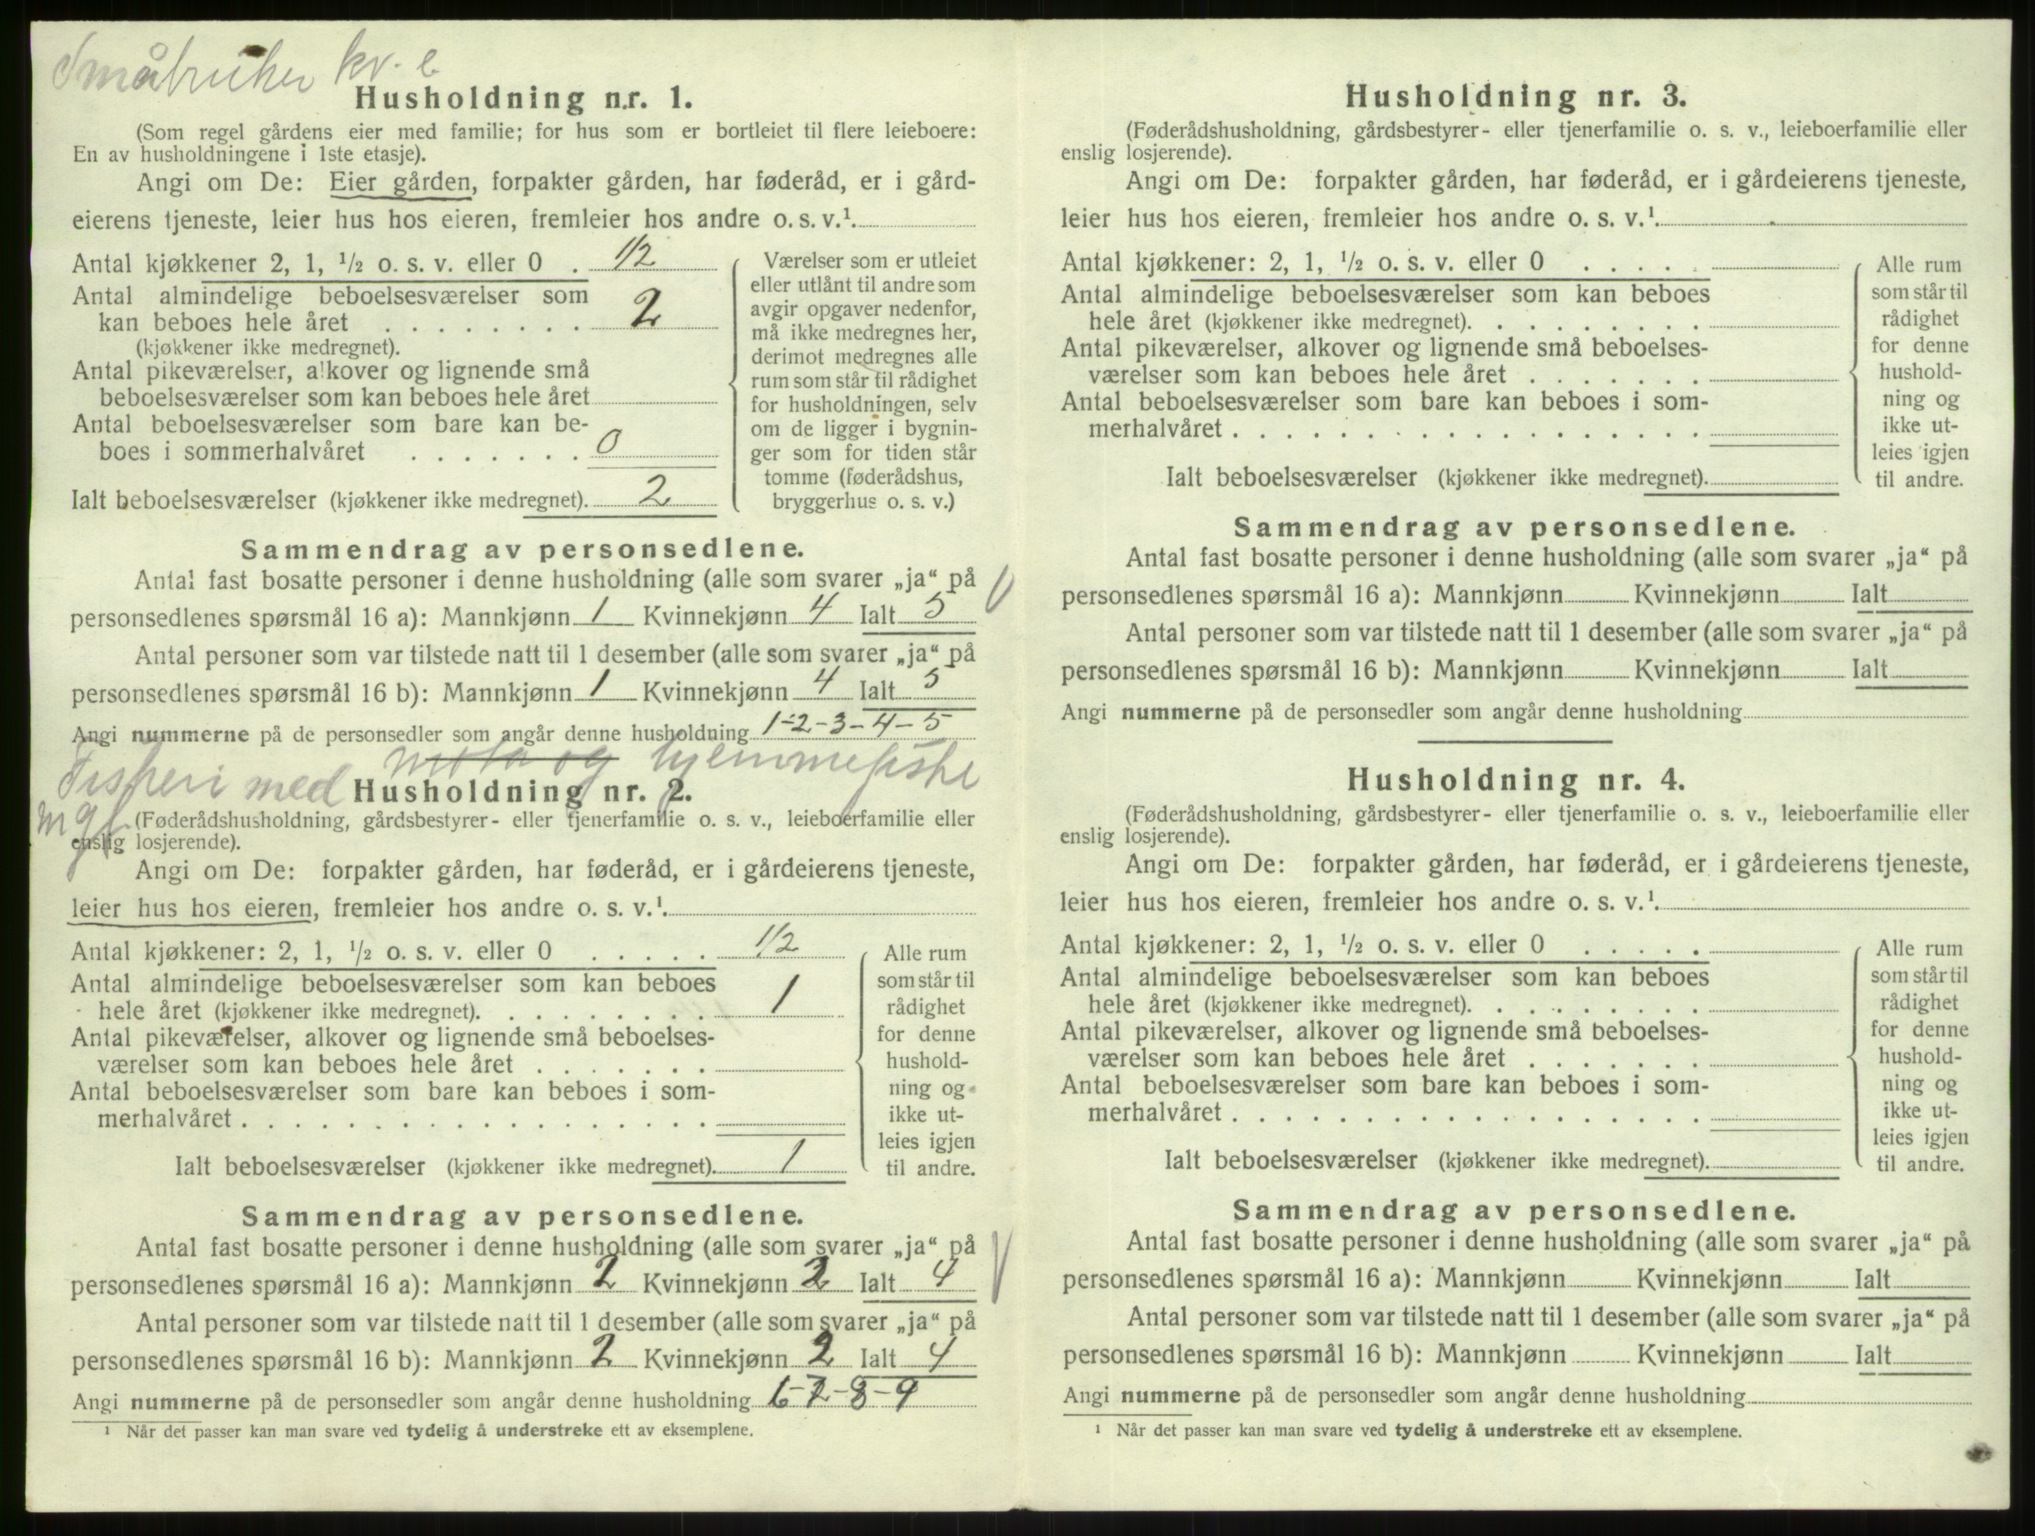 Småbruker kv. e
Husholdning nr. 1.
(Som regel gårdens eier med familie; for hus som er bortleiet til flere leieboere:
En av husholdningene i 1ste etasje).
Angi om De: Eier gården, forpakter gården, har føderåd, er i gård-
eierens tjeneste, leier hus hos eieren, fremleier hos andre o. s. v.¹
Antal kjøkkener 2, 1, ½ o. s. v. eller 0 . 1/2
Antal almindelige beboelsesværelser som
kan beboes hele året . . . . . . . . 2
(kjøkkener ikke medregnet).
Antal pikeværelser, alkover og lignende små
beboelsesværelser som kan beboes hele året
Antal beboelsesværelser som bare kan be-
boes i sommerhalvåret . . . . . . . 0
Ialt beboelsesværelser (kjøkkener ikke medregnet). 2
Værelser som er utleiet
eller utlånt til andre som
avgir opgaver nedenfor,
må ikke medregnes her,
derimot medregnes alle
rum som står til rådighet
for husholdningen, selv
om de ligger i bygnin-
ger som for tiden står
tomme (føderådshus,
bryggerhus o. s. v.)
Sammendrag av personsedlene.
Antal fast bosatte personer i denne husholdning (alle som svarer „ja“ på
personsedlenes spørsmål 16 a): Mannkjønn 1 Kvinnekjønn 4 Ialt 5
Antal personer som var tilstede natt til 1 desember (alle som svarer „ja“ på
personsedlenes spørsmål 16 b): Mannkjønn 1 Kvinnekjønn 4 Ialt 5
Angi nummerne på de personsedler som angår denne husholdning 1-2-3-4-5
Fiskeri med og hjemmefiske
Husholdning nr. 2.
(Føderådshusholdning, gårdsbestyrer- eller tjenerfamilie o. s. v., leieboerfamilie eller
enslig losjerende).
Angi om De: forpakter gården, har føderåd, er i gårdeierens tjeneste,
leier hus hos eieren, fremleier hos andre o. s. v.¹
Antal kjøkkener: 2, 1, ½ o. s. v. eller 0 . . . . . 1/2
Antal almindelige beboelsesværelser som kan beboes
hele året (kjøkkener ikke medregnet). . . . . . . . . 1
Antal pikeværelser, alkover og lignende små beboelses-
værelser som kan beboes hele året . . . . . . .
Antal beboelsesværelser som bare kan beboes i som-
merhalvåret . . . . . . . . . . . . . . . . . .
Ialt beboelsesværelser (kjøkkener ikke medregnet). 1
Alle rum
som står til
rådighet
for denne
hushold-
ning og
ikke ut-
leies igjen
til andre.
Sammendrag av personsedlene.
Antal fast bosatte personer i denne husholdning (alle som svarer „ja“ på
personsedlenes spørsmål 16 a): Mannkjønn 2 Kvinnekjønn 2 Ialt 4
Antal personer som var tilstede natt til 1 desember (alle som svarer „ja“ på
personsedlenes spørsmål 16 b): Mannkjønn 2 Kvinnekjønn 2 Ialt 4
Angi nummerne på de personsedler som angår denne husholdning 6-7-8-9
¹ Når det passer kan man svare ved tydelig å understreke ett av eksemplene.
Husholdning nr. 3.
(Føderådshusholdning, gårdsbestyrer- eller tjenerfamilie o. s. v., leieboerfamilie eller
enslig losjerende).
Angi om De: forpakter gården, har føderåd, er i gårdeierens tjeneste,
leier hus hos eieren, fremleier hos andre o. s. v.¹
Antal kjøkkener: 2, 1, ½ o. s. v. eller 0 . . . . .
Antal almindelige beboelsesværelser som kan beboes
hele året (kjøkkener ikke medregnet). . . . . . . . .
Antal pikeværelser, alkover og lignende små beboelses-
værelser som kan beboes hele året . . . . . . .
Antal beboelsesværelser som bare kan beboes i som-
merhalvåret . . . . . . . . . . . . . . . . . .
Ialt beboelsesværelser (kjøkkener ikke medregnet).
Alle rum
som står til
rådighet
for denne
hushold-
ning og
ikke ut-
leies igjen
til andre.
Sammendrag av personsedlene.
Antal fast bosatte personer i denne husholdning (alle som svarer „ja“ på
personsedlenes spørsmål 16 a): Mannkjønn Kvinnekjønn Ialt
Antal personer som var tilstede natt til 1 desember (alle som svarer „ja“ på
personsedlenes spørsmål 16 b): Mannkjønn Kvinnekjønn Ialt
Angi nummerne på de personsedler som angår denne husholdning
Husholdning nr. 4.
(Føderådshusholdning, gårdsbestyrer- eller tjenerfamilie o. s. v., leieboerfamilie eller
enslig losjerende).
Angi om De: forpakter gården, har føderåd, er i gårdeierens tjeneste,
leier hus hos eieren, fremleier hos andre o. s. v.¹
Antal kjøkkener: 2, 1, ½ o. s. v. eller 0 . . . . .
Antal almindelige beboelsesværelser som kan beboes
hele året (kjøkkener ikke medregnet). . . . . . . . .
Antal pikeværelser, alkover og lignende små beboelses-
værelser som kan beboes hele året . . . . . . .
Antal beboelsesværelser som bare kan beboes i som-
merhalvåret . . . . . . . . . . . . . . . . . .
Ialt beboelsesværelser (kjøkkener ikke medregnet).
Alle rum
som står til
rådighet
for denne
hushold-
ning og
ikke ut-
leies igjen
til andre.
Sammendrag av personsedlene.
Antal fast bosatte personer i denne husholdning (alle som svarer „ja“ på
personsedlenes spørsmål 16 a): Mannkjønn Kvinnekjønn Ialt
Antal personer som var tilstede natt til 1 desember (alle som svarer „ja“ på
personsedlenes spørsmål 16 b): Mannkjønn Kvinnekjønn Ialt
Angi nummerne på de personsedler som angår denne husholdning
¹ Når det passer kan man svare ved tydelig å understreke ett av eksemplene.